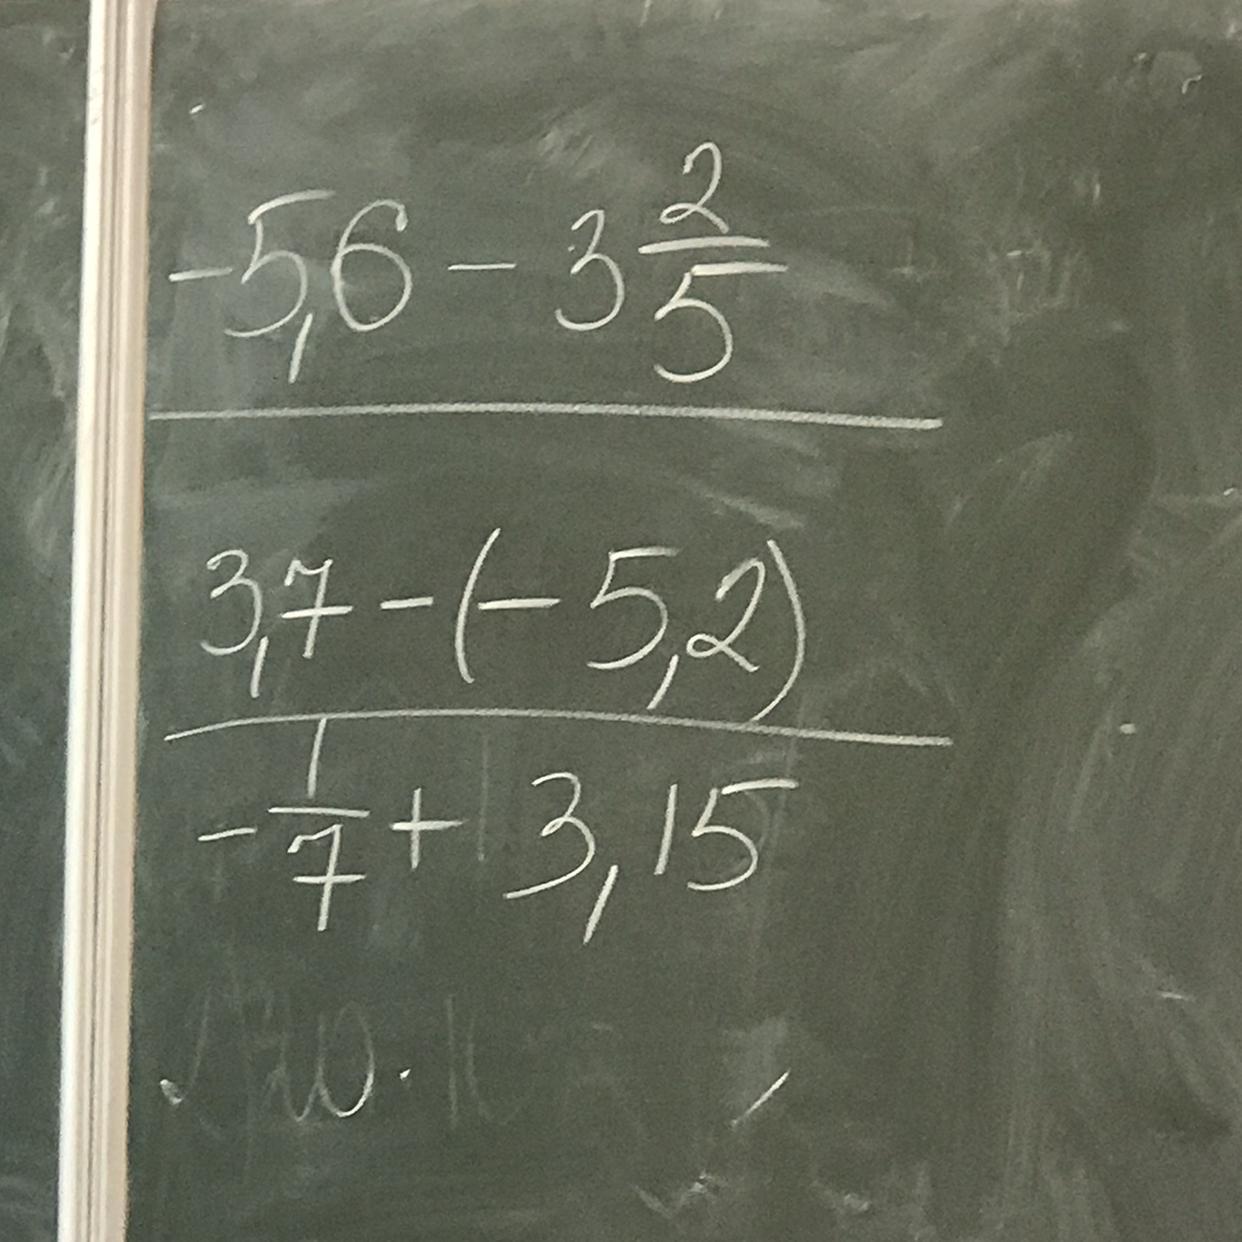 -5,6 - 3 2/5
3,7 - (-5,2)
- 1/7 + 3,15